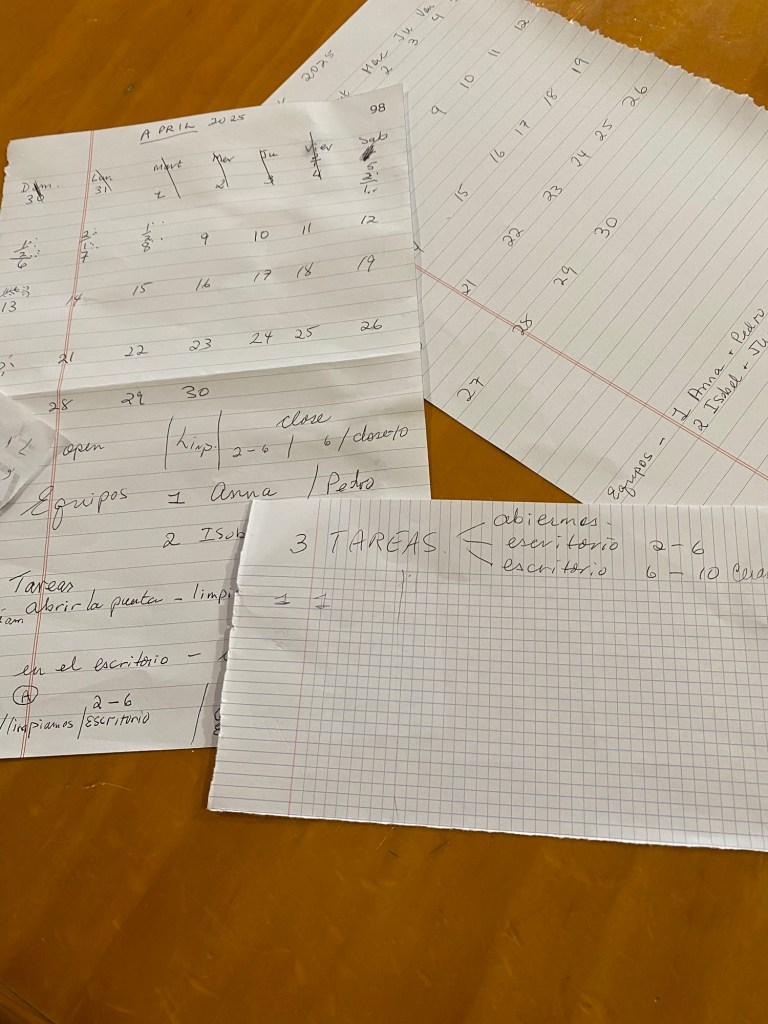 APRIL 2025
98
Dom. Lun Mart Mer Ju Vier Sab
30 31 1 2 3 4 5
6 7 8 9 10 11 12
13 14 15 16 17 18 19
21 22 23 24 25 26
28 29 30
open | Limp. | close
2-6 | 6 / close 10
Equipos 1 Anna / Pedro
2 Isob
Tareas
am abrir la punta - limpi
en el escritorio -
A
2-6
/ limpiamos / Escritorio /
2025
Mar Ju Van
2 3 4
9 10 11 12
15 16 17 18 19
21 22 23 24 25 26
27 28 29 30
Equipos - 1 Anna + Pedro
2 Isabel + Ju
3 TAREAS. abiermos.
escritorio 2-6
escritorio 6 - 10
1 1